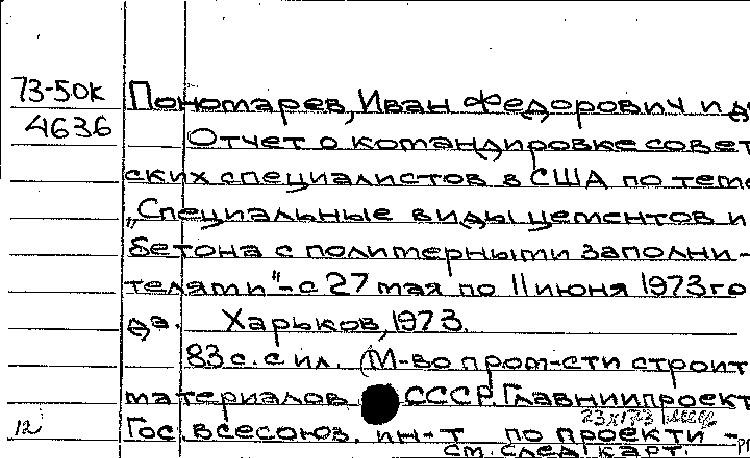 73-50к
4636
Пономарев, Иван Федорович и д
Отчет о командировке совет
ских специалистов в США по теме
„Специальные виды цементов и
бетона с полимерными заполни-
телями" - с 27 мая по 11 июня 1973 го
да. Харьков, 1973.
83 с. с ил. (М-во пром-сти строит
материалов СССР. Главниипроект
23 XI 73
12
Гос. всесоюз. ин-т по проекти -
см. след. карт.